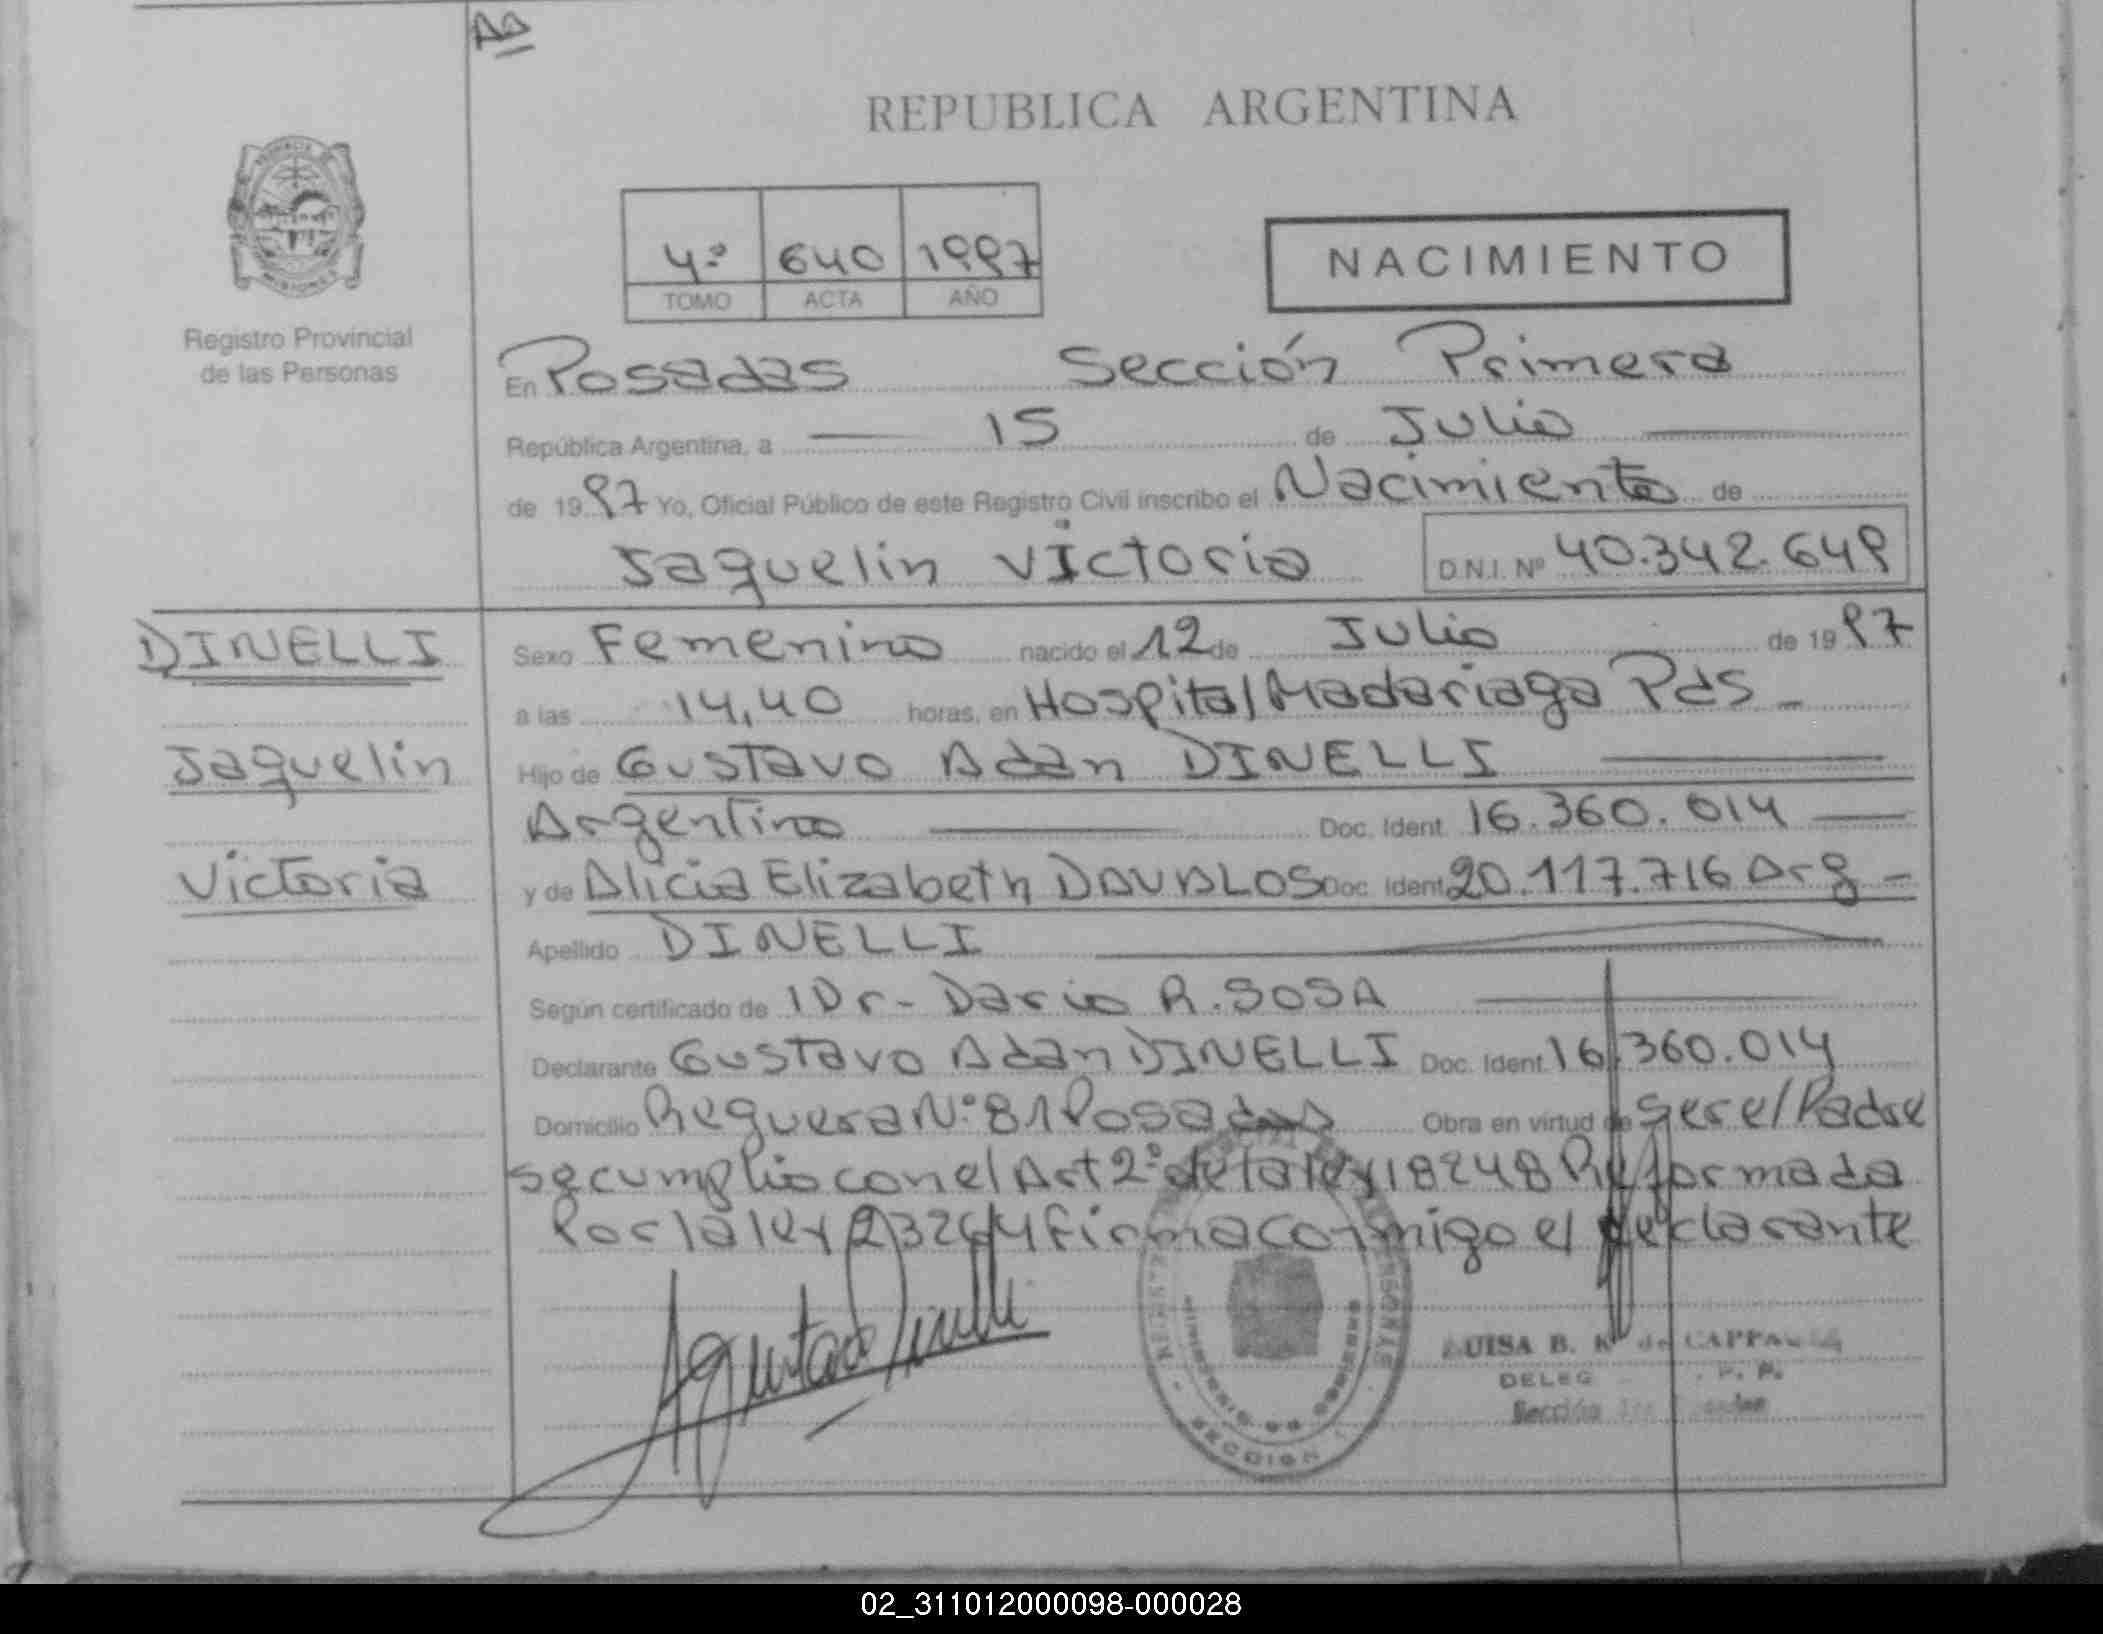 AD
REPUBLICA ARGENTINA
4º 640 1997
TOMO ACTA AÑO
NACIMIENTO
Registro Provincial
de las Personas
En Posadas Sección Primera
República Argentina, a 15 de Julio
de 1997 Yo, Oficial Público de este Registro Civil inscribo el Nacimiento de
Jaquelin Victoria D.N.I. Nº 40.342.649
DINELLI
Jaquelin
Victoria
Sexo Femenino nacido el 12 de Julio de 1997
a las 14,40 horas, en Hospital Madariaga Pds
Hijo de Gustavo Adan DINELLI
Argentino Doc. Ident. 16.360.014
y de Alicia Elizabeth DAVALOS Doc. Ident. 20.117.716 Arg
Apellido DINELLI
Según certificado de 1 Dr - Dario R. SOSA
Declarante Gustavo Adan DINELLI Doc. Ident. 16.360.014
Domicilio Reguera Nº 81 Posadas Obra en virtud de Ser el Padre
se cumplio con el Art 2º de la ley 18248 Reformada
Por la ley 23264 firma conmigo el declarante
MINISTERIO DE GOBIERNO
SECCION 1
LUISA B. K de
DELEG
Sección
02_311012000098-000028